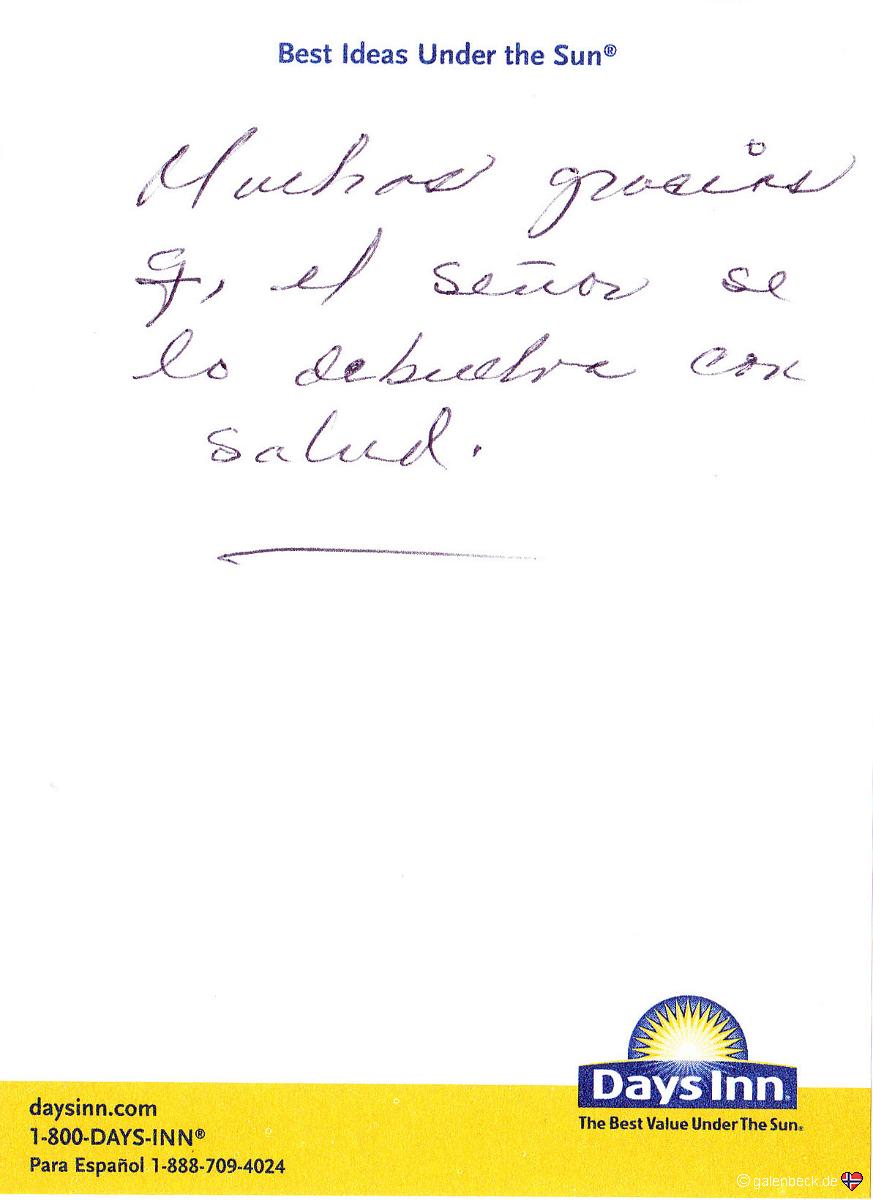 Best Ideas Under the Sun®
Muchas gracias
q, el señor se
lo debuelva con
salud.
Days Inn®
The Best Value Under The Sun®
daysinn.com
1-800-DAYS-INN®
Para Español 1-888-709-4024
© galenbeck.de